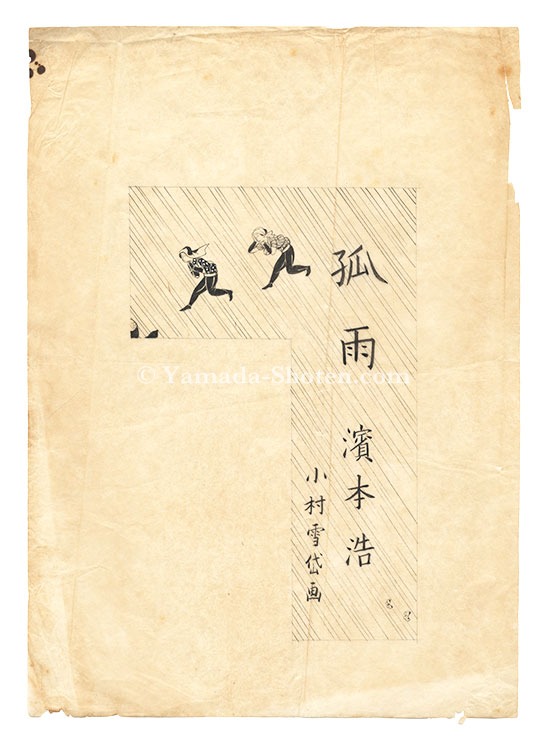 孤雨
濱本浩
小村雪岱画
© Yamada-Shoten.com